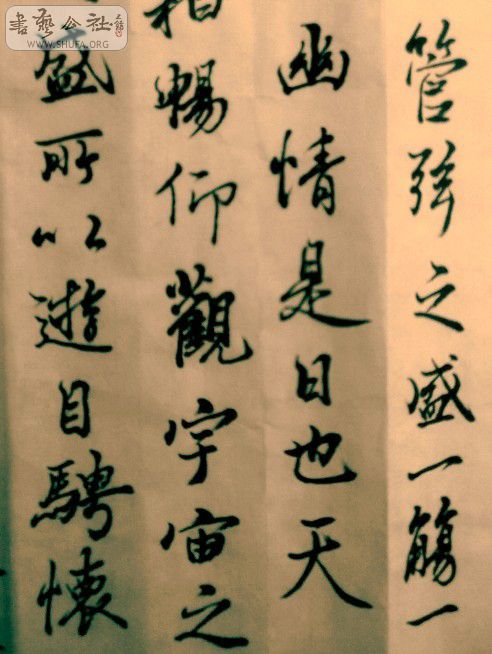 管弦之盛一觴一
幽情是日也天
暢仰觀宇宙之
盛所以遊目騁懷
書藝公社
WWW.SHUFA.ORG